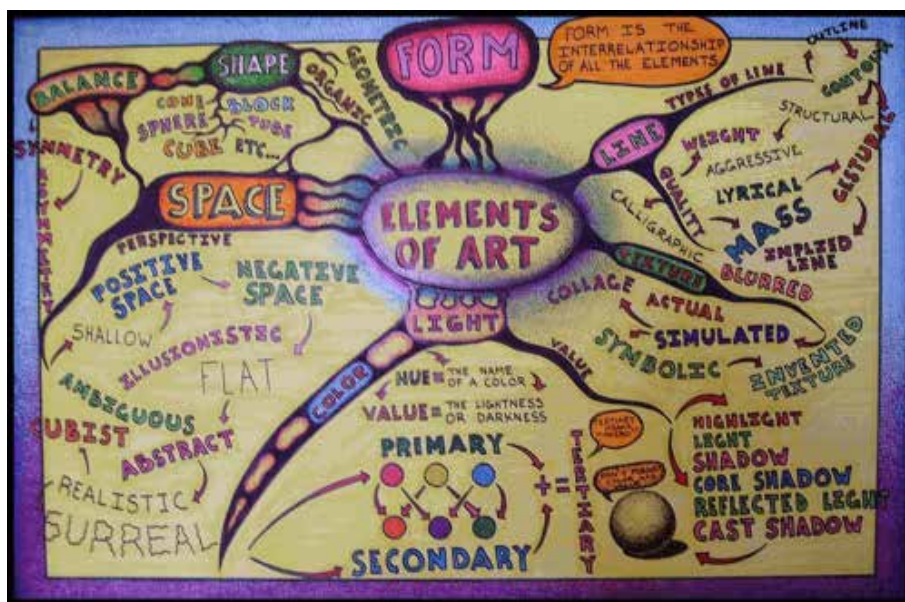 FORM
FORM IS THE
INTERRELATIONSHIP
OF ALL THE ELEMENTS
BALANCE
SYMMETRY
ASYMMETRY
SHAPE
CONE
BLOCK
SPHERE
TUBE
CUBE ETC...
ORGANIC
GEOMETRIC
SPACE
PERSPECTIVE
POSITIVE
SPACE
NEGATIVE
SPACE
SHALLOW
ILLUSIONISTIC
FLAT
AMBIGUOUS
CUBIST
ABSTRACT
REALISTIC
SURREAL
ELEMENTS
OF ART
LINE
TYPES OF LINE
OUTLINE
CONTOUR
STRUCTURAL
GESTURAL
IMPLIED
LINE
QUALITY
WEIGHT
AGGRESSIVE
LYRICAL
CALLIGRAPHIC
MASS
BLURRED
TEXTURE
COLLAGE
ACTUAL
SIMULATED
SYMBOLIC
INVENTED
TEXTURE
LIGHT
VALUE
COLOR
HUE = THE NAME
OF A COLOR
VALUE = THE LIGHTNESS
OR DARKNESS
PRIMARY
SECONDARY
+ =
TERTIARY
HIGHLIGHT
LIGHT
SHADOW
CORE SHADOW
REFLECTED LIGHT
CAST SHADOW